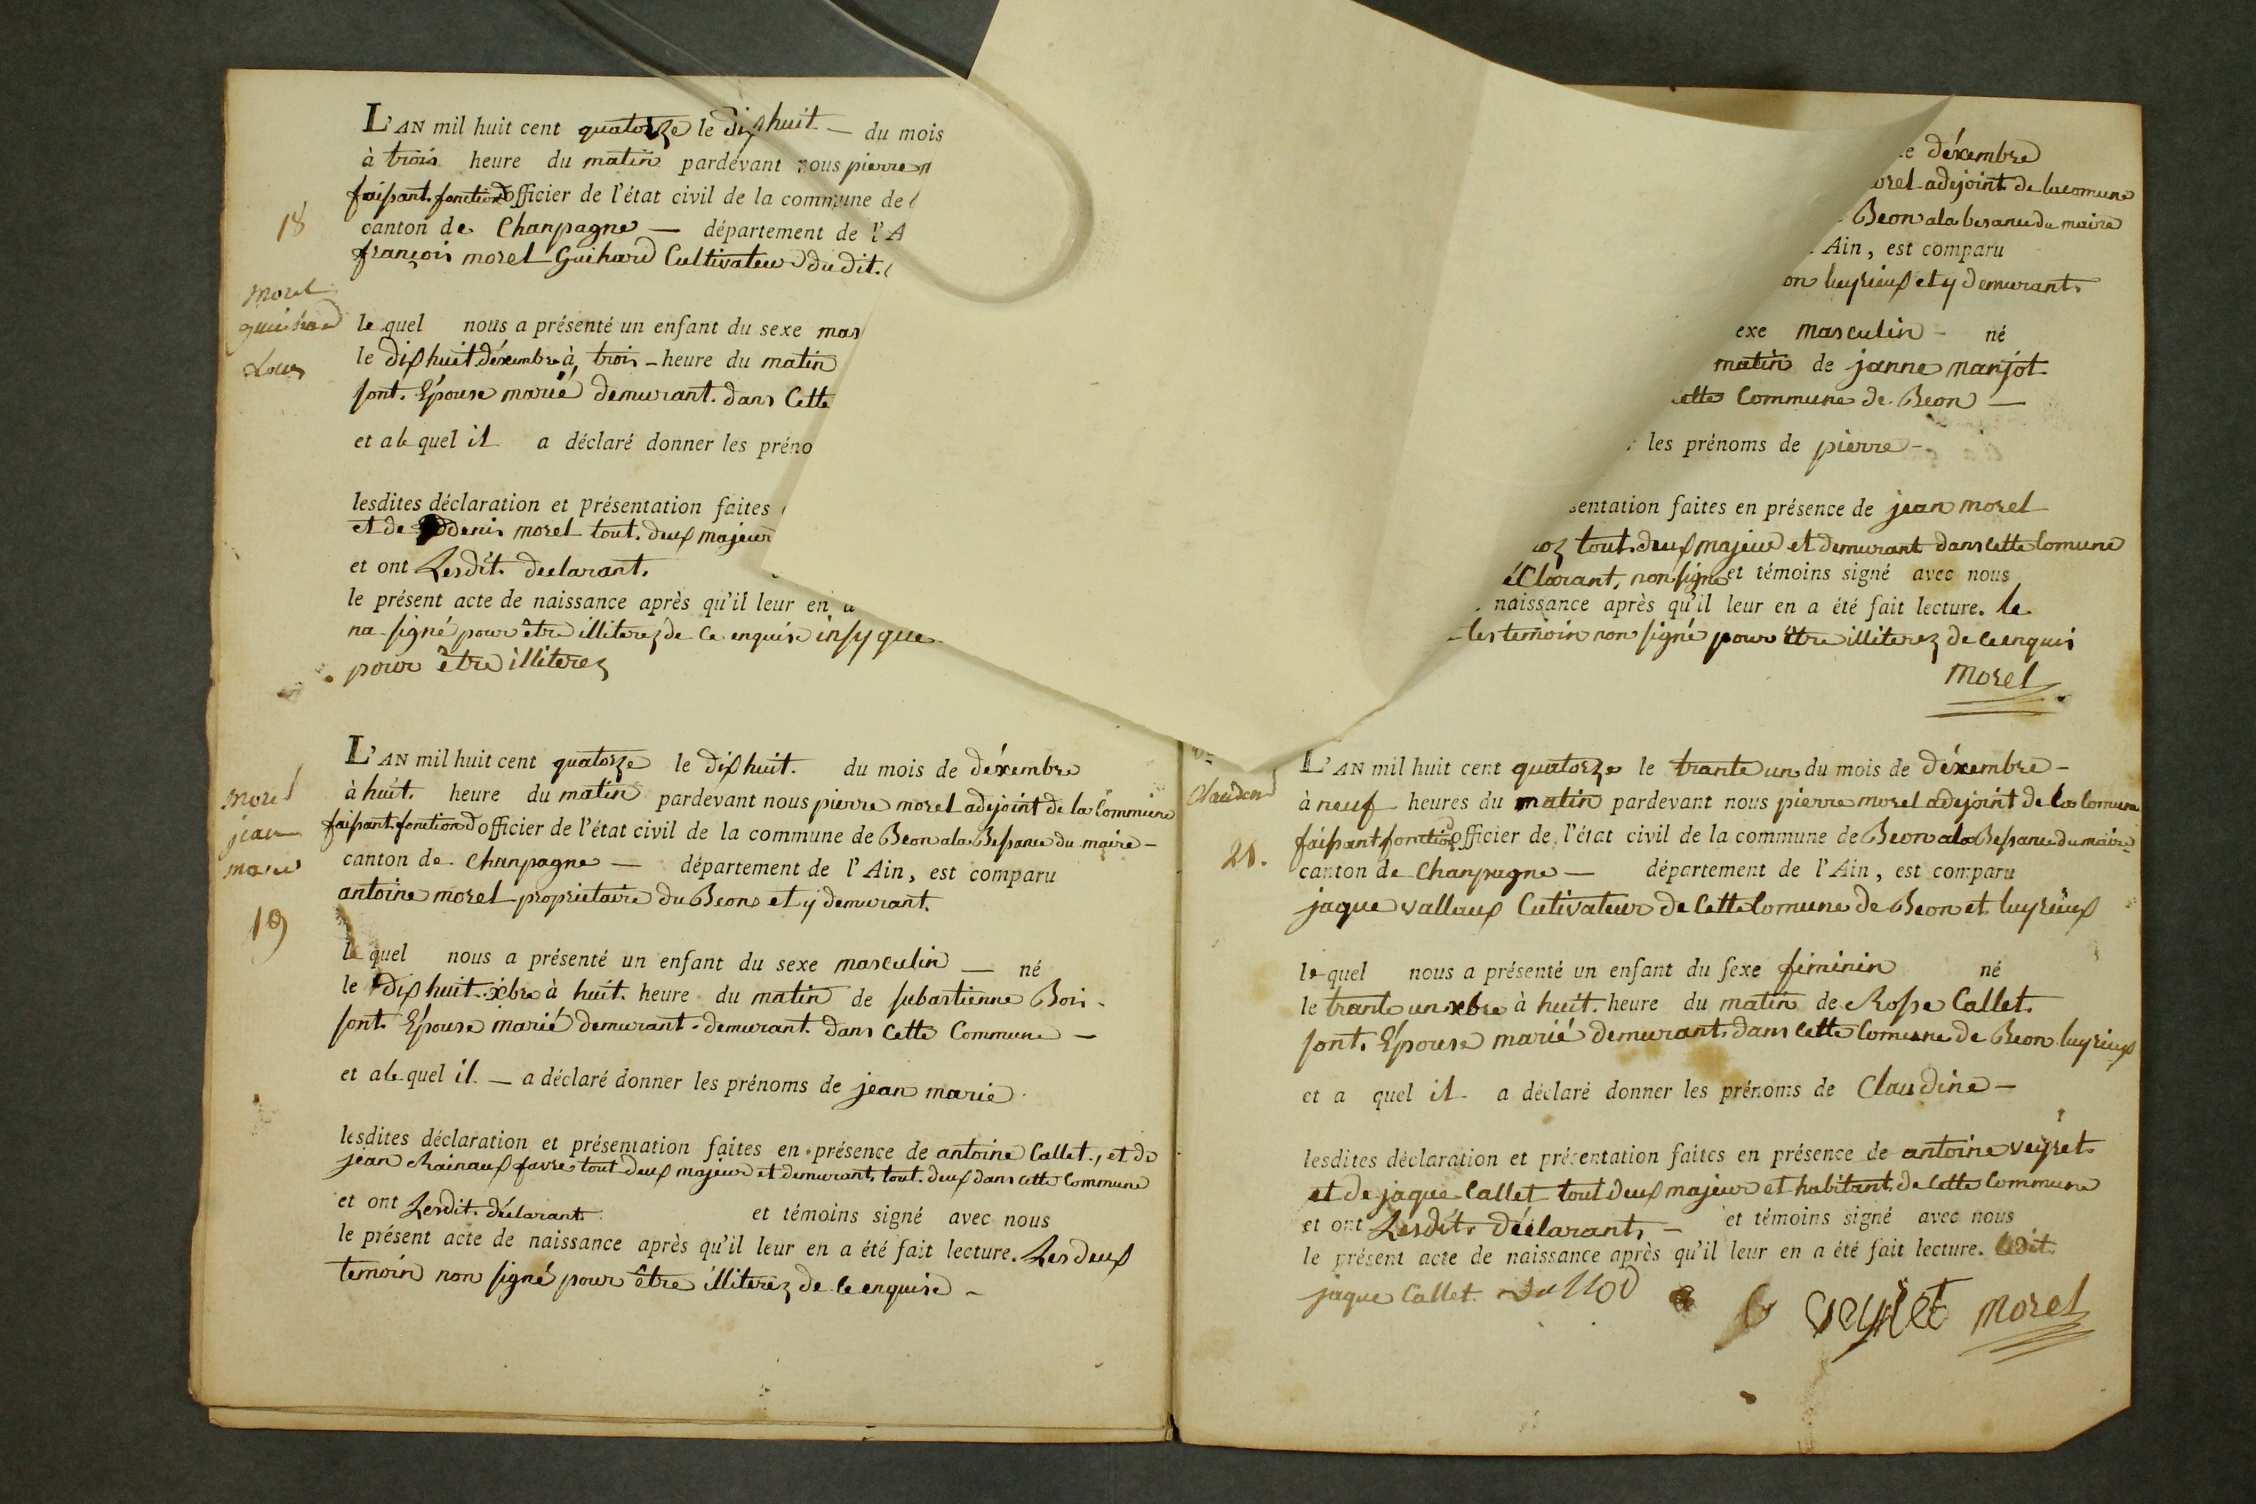 18
morel
guichard
Louis
L'AN mil huit cent quatorze le dix huit — du mois
à trois heure du matin pardevant nous pierre
faisant fonction d'officier de l'état civil de la commune de
canton de Chanpagne — département de l'A
françois morel Guihard Cultivateur du dit.
le quel nous a présenté un enfant du sexe mas
le dix huit déxembre à, trois - heure du matin
sont. Épouse marié demurant. dans Cette
et ale quel il a déclaré donner les préno
lesdites déclaration et présentation faites
et de denis morel tout. deux majeur
et ont Lesdit. declarant.
le présent acte de naissance après qu'il leur en a
na signé pour être illiterez de Ce enquise insy que
pour être illiterez
morel
jean
marie
19
L'AN mil huit cent quatorze le dix huit. du mois de déxembre
à huit. heure du matin pardevant nous pierre morel adejoint de la Commune
faisant fonction d'officier de l'état civil de la commune de Beon ala Bessance du maire -
canton de Chanpagne — département de l'Ain, est comparu
antoine morel proprietaire du Beon et y demurant.
le quel nous a présenté un enfant du sexe masculin — né
le dix huit. xbre à huit. heure du matin de subastienne Bois -
sont. Épouse marié demurant. demurant. dans Cette Commune —
et ale quel il. — a déclaré donner les prénoms de jean marie
lesdites déclaration et présentation faites en présence de antoine Callet., et de
jean Rainaux favre tout deux majeur et demurant, tout. deux dans cette Commune
et ont Lesdit. déclarant. et témoins signé avec nous
le présent acte de naissance après qu'il leur en a été fait lecture. Les deux
temoin non signé pour être illiterez de Ce enquise -
e déxembre
orel adejoint de la comune
Beon ala besance du maire
Ain, est comparu
on luyrieux et y demurant.
exe masculin - né
matin de janne manjot
ette Commune de Beon —
les prénoms de pierre -
sentation faites en présence de jean morel
tout. deux majeur et demurant dans cette Comune
éClarant, non signé et témoins signé avec nous
naissance après qu'il leur en a été fait lecture. le
les temoin non signé pour être illiterez de Ce enquis
morel
Claudene
21.
L'AN mil huit cent quatorze le trante un du mois de déxembre -
à neuf heures du matin pardevant nous pierre morel adejoint de la Comune
faisant fonction d'officier de l'état civil de la commune de Beon ala Bessance du maire
canton de Chanpagne — département de l'Ain, est comparu
jaque vallaux Cutivateur de Cette Comune de Beon et luyrieux
le quel nous a présenté un enfant du sexe féminin né
le trante un xbre à huit. heure du matin de Rosse Callet.
sont. Épouse marié demurant. dans cette Comune de Beon luyrieux
et a quel il a déclaré donner les prénoms de Claudine —
lesdites déclaration et présentation faites en présence de antoine veyret
et de jaque Callet tout deux majeur et habitant. de Cette Commune
et ont Lesdit. déclarant, — et témoins signé avec nous
le présent acte de naissance après qu'il leur en a été fait lecture. Ledit.
jaque Callet.
veyret morel